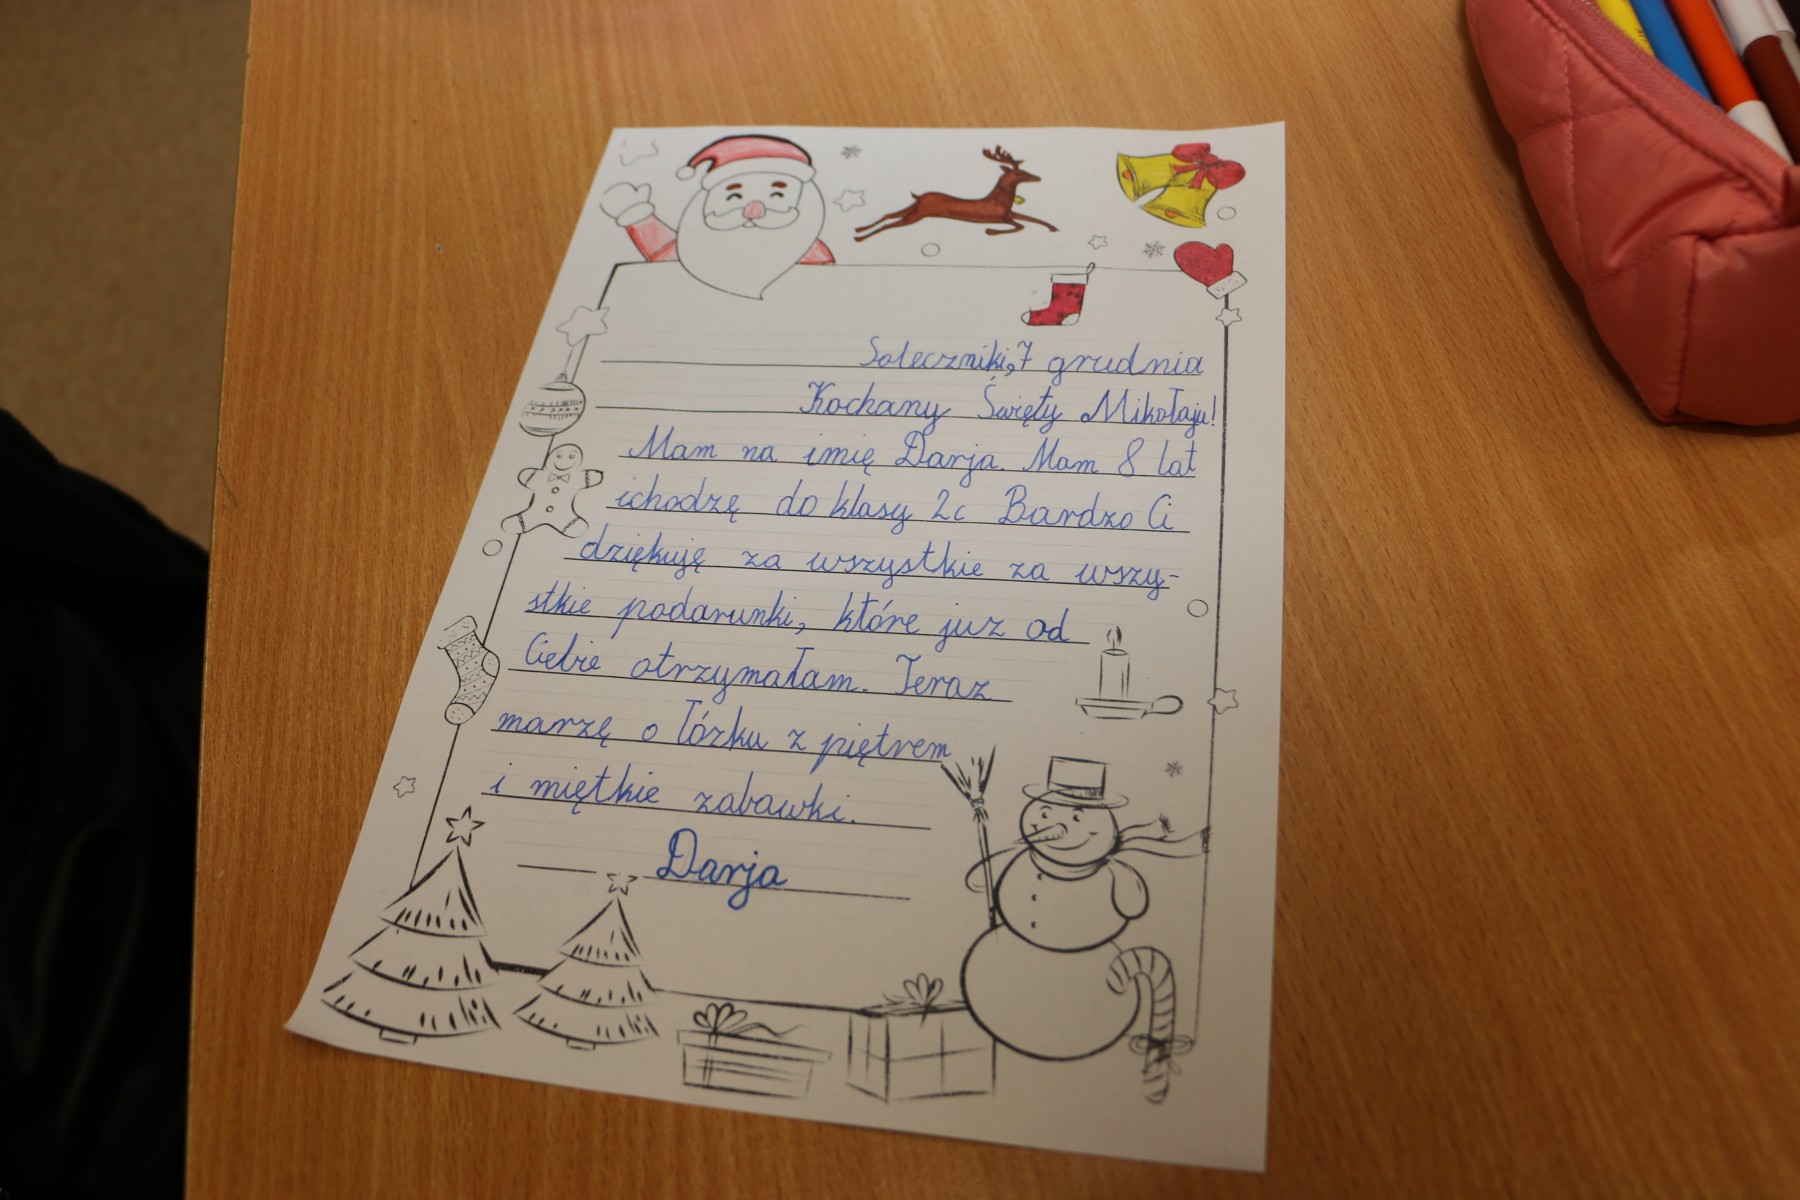 Soleczniki, 7 grudnia
Kochany Święty Mikołaju!
Mam na imię Darja. Mam 8 lat
i chodzę do klasy 2c Bardzo Ci
dziękuję za wszystkie za wszy-
stkie podarunki, które już od
Ciebie otrzymałam. Teraz
marzę o łóżku z piętrem
i miętkie zabawki.
Darja